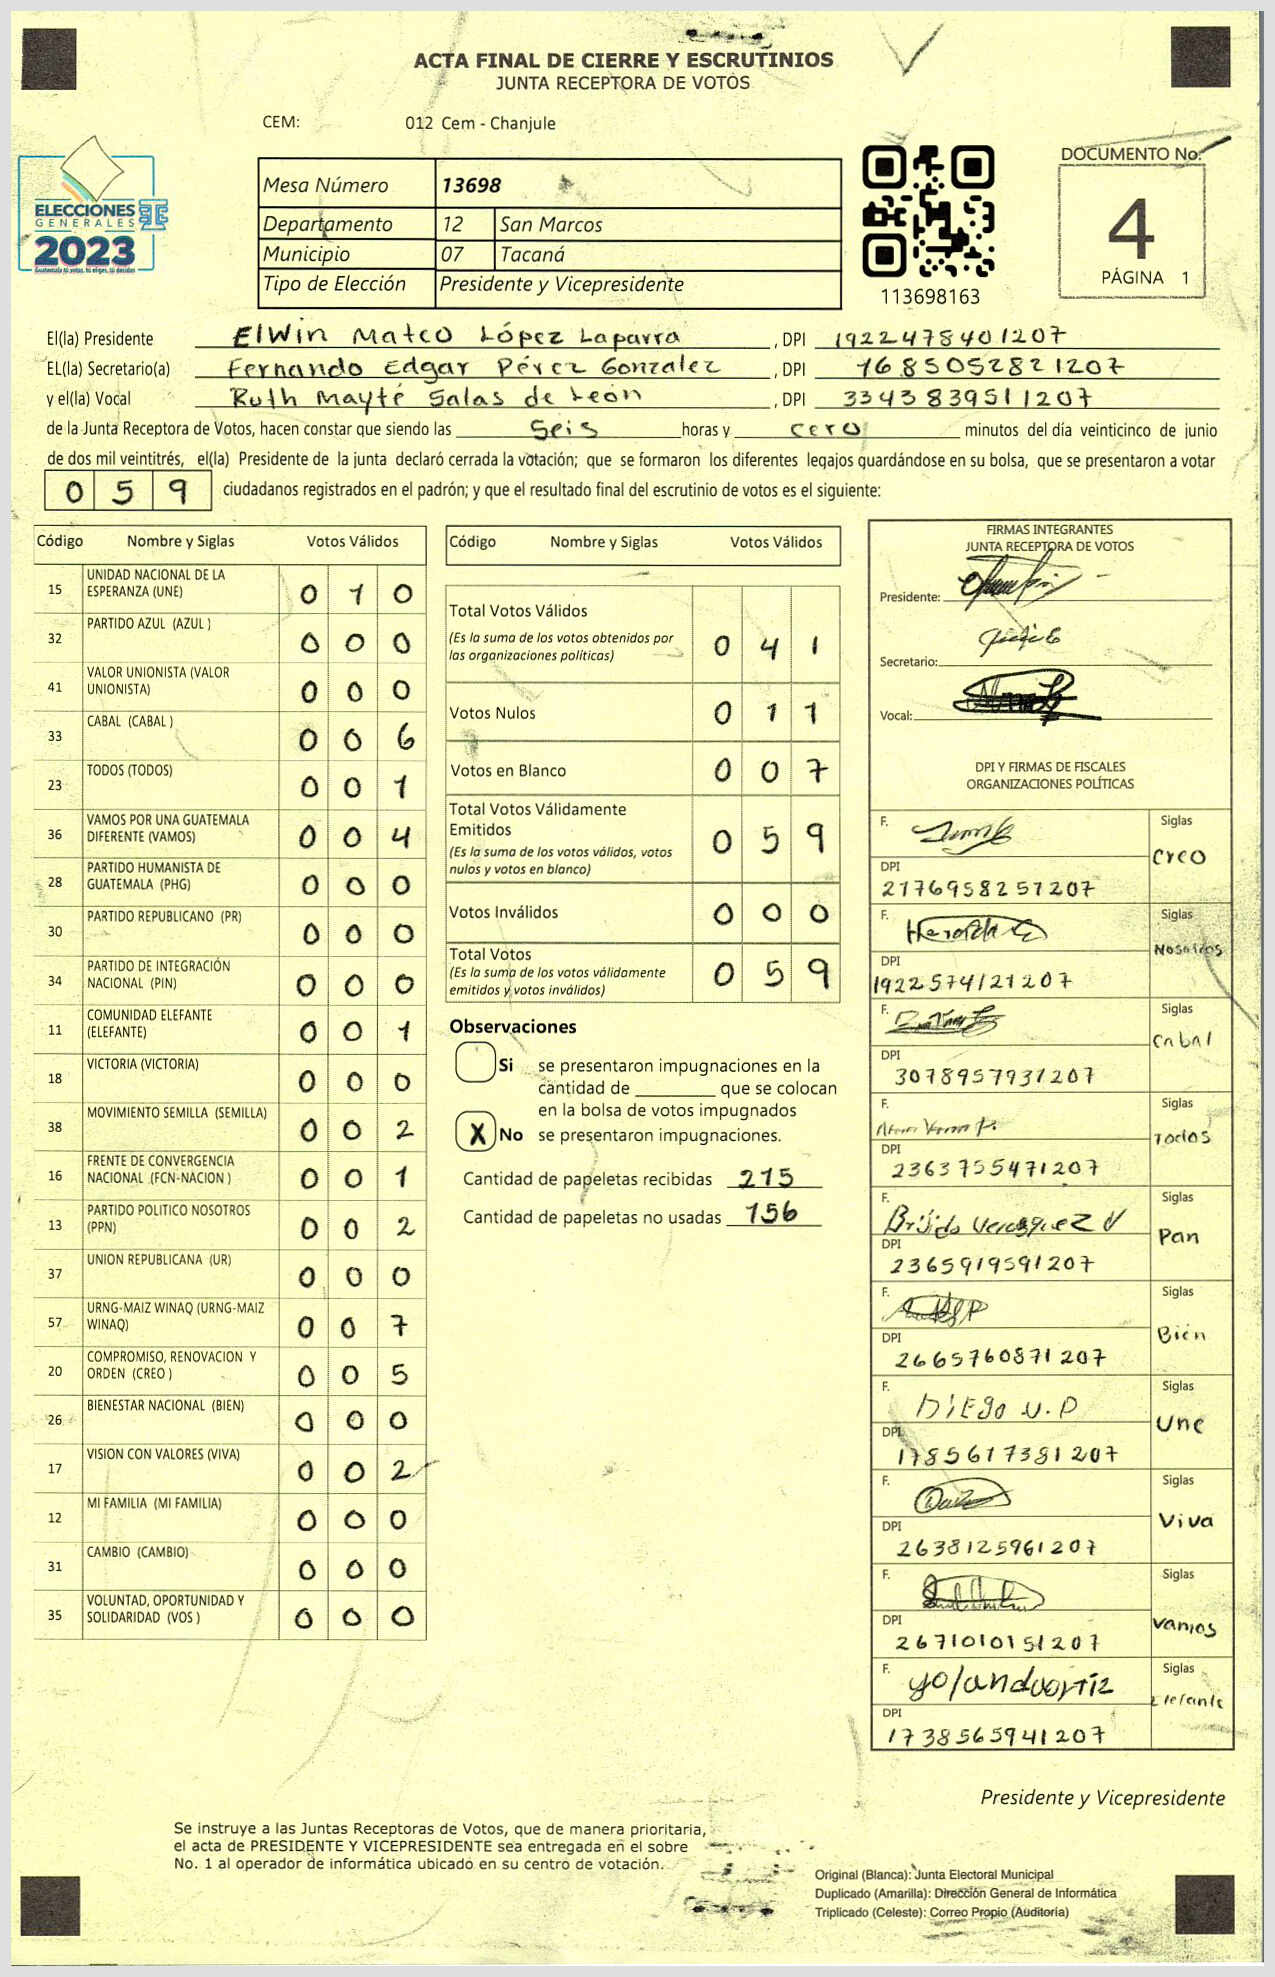 ACTA FINAL DE CIERRE Y ESCRUTINIOS
JUNTA RECEPTORA DE VOTOS
CEM: 012 Cem - Chanjule
DOCUMENTO No.
4
PÁGINA 1
ELECCIONES
GENERALES
2023
Mesa Número 13698
Departamento 12 San Marcos
Municipio 07 Tacaná
Tipo de Elección Presidente y Vicepresidente
113698163
El(la) Presidente Elwin Mateo López Laparra, DPI 1922478401207
EL(la) Secretario(a) Fernando Edgar Pérez Gonzalez, DPI 1685052821207
y el(la) Vocal Ruth Mayté Salas de León, DPI 3343839511207
de la Junta Receptora de Votos, hacen constar que siendo las seis horas y cero minutos del día veinticinco de junio
de dos mil veintitrés, el(la) Presidente de la junta declaró cerrada la votación; que se formaron los diferentes legajos guardándose en su bolsa, que se presentaron a votar
0 5 9 ciudadanos registrados en el padrón; y que el resultado final del escrutinio de votos es el siguiente:
Código Nombre y Siglas Votos Válidos
15 UNIDAD NACIONAL DE LA ESPERANZA (UNE) 0 1 0
32 PARTIDO AZUL (AZUL ) 0 0 0
41 VALOR UNIONISTA (VALOR UNIONISTA) 0 0 0
33 CABAL (CABAL ) 0 0 6
23 TODOS (TODOS) 0 0 1
36 VAMOS POR UNA GUATEMALA DIFERENTE (VAMOS) 0 0 4
28 PARTIDO HUMANISTA DE GUATEMALA (PHG) 0 0 0
30 PARTIDO REPUBLICANO (PR) 0 0 0
34 PARTIDO DE INTEGRACIÓN NACIONAL (PIN) 0 0 0
11 COMUNIDAD ELEFANTE (ELEFANTE) 0 0 1
18 VICTORIA (VICTORIA) 0 0 0
38 MOVIMIENTO SEMILLA (SEMILLA) 0 0 2
16 FRENTE DE CONVERGENCIA NACIONAL (FCN-NACION ) 0 0 1
13 PARTIDO POLITICO NOSOTROS (PPN) 0 0 2
37 UNION REPUBLICANA (UR) 0 0 0
57 URNG-MAIZ WINAQ (URNG-MAIZ WINAQ) 0 0 7
20 COMPROMISO, RENOVACION Y ORDEN (CREO ) 0 0 5
26 BIENESTAR NACIONAL (BIEN) 0 0 0
17 VISION CON VALORES (VIVA) 0 0 2
12 MI FAMILIA (MI FAMILIA) 0 0 0
31 CAMBIO (CAMBIO) 0 0 0
35 VOLUNTAD, OPORTUNIDAD Y SOLIDARIDAD (VOS ) 0 0 0
Código Nombre y Siglas Votos Válidos
Total Votos Válidos 0 4 1
(Es la suma de los votos obtenidos por
las organizaciones políticas)
Votos Nulos 0 1 1
Votos en Blanco 0 0 7
Total Votos Válidamente
Emitidos 0 5 9
(Es la suma de los votos válidos, votos
nulos y votos en blanco)
Votos Inválidos 0 0 0
Total Votos 0 5 9
(Es la suma de los votos válidamente
emitidos y votos inválidos)
Observaciones
Si se presentaron impugnaciones en la
cantidad de ________ que se colocan
en la bolsa de votos impugnados
X No se presentaron impugnaciones.
Cantidad de papeletas recibidas 215
Cantidad de papeletas no usadas 156
FIRMAS INTEGRANTES
JUNTA RECEPTORA DE VOTOS
Presidente:
Secretario:
Vocal:
DPI Y FIRMAS DE FISCALES
ORGANIZACIONES POLÍTICAS
F. Siglas
Creo
DPI
2176958251207
F. Siglas
Nosotros
DPI
1922574121207
F. Siglas
Cabal
DPI
3078957931207
F. Siglas
Todos
DPI
2363755471207
F. Siglas
Pan
DPI
2365919591207
F. Siglas
Bien
DPI
2665760871207
F. Diego V.P Siglas
Une
DPI
1785617381207
F. Siglas
Viva
DPI
2638125961207
F. Siglas
Vamos
DPI
2671010151207
F. yolandaortiz Siglas
Elefante
DPI
1738565941207
Presidente y Vicepresidente
Se instruye a las Juntas Receptoras de Votos, que de manera prioritaria,
el acta de PRESIDENTE Y VICEPRESIDENTE sea entregada en el sobre
No. 1 al operador de informática ubicado en su centro de votación.
Original (Blanca): Junta Electoral Municipal
Duplicado (Amarilla): Dirección General de Informática
Triplicado (Celeste): Correo Propio (Auditoria)